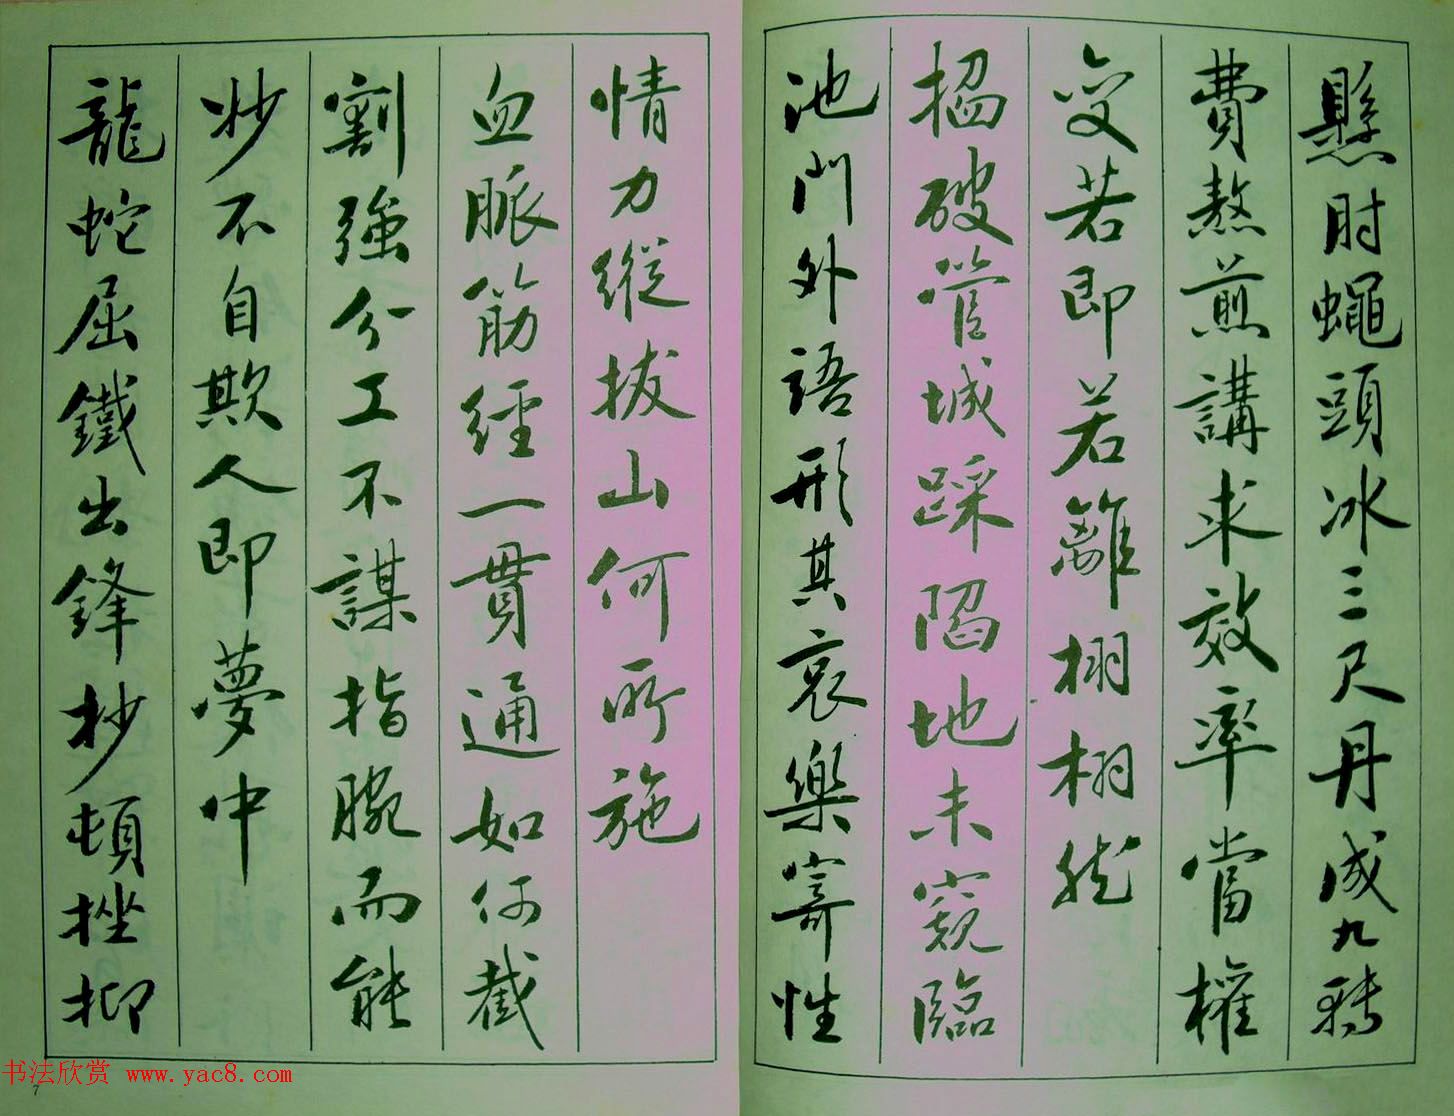 懸肘蠅頭冰三尺丹成九轉
費熬煎講求效率當權
变若即若離栩栩然
搨破管城踩陷地未窺臨
池門外語形其哀樂寄性
情力縱拔山何所施
血脈筋經一貫通如何截
割強分工不謀指腕而能
妙不自欺人即夢中
龍蛇屈鐵出鋒杪頓挫抑
书法欣赏 www.yac8.com
7